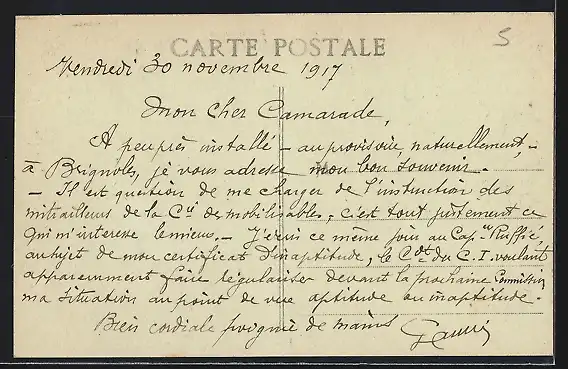 5
CARTE POSTALE
Vendredi 30 novembre 1917
Mon Cher Camarade,
A peu près installé - au provisoire, naturellement, -
à Brignoles, je vous adresse mon bon souvenir. -
- Il est question de me charger de l'instruction des
mitrailleurs de la Cie de mobilisables; c'est tout justement ce
qui m'intéresse le mieux. - J'écris ce même jour au Cape Ruffié,
au sujet de mon certificat d'inaptitude, le Cdt du C. I. voulant
apparemment faire régulariser devant la prochaine Commission
ma situation au point de vue aptitude ou inaptitude.
Bien cordiale poignée de mains